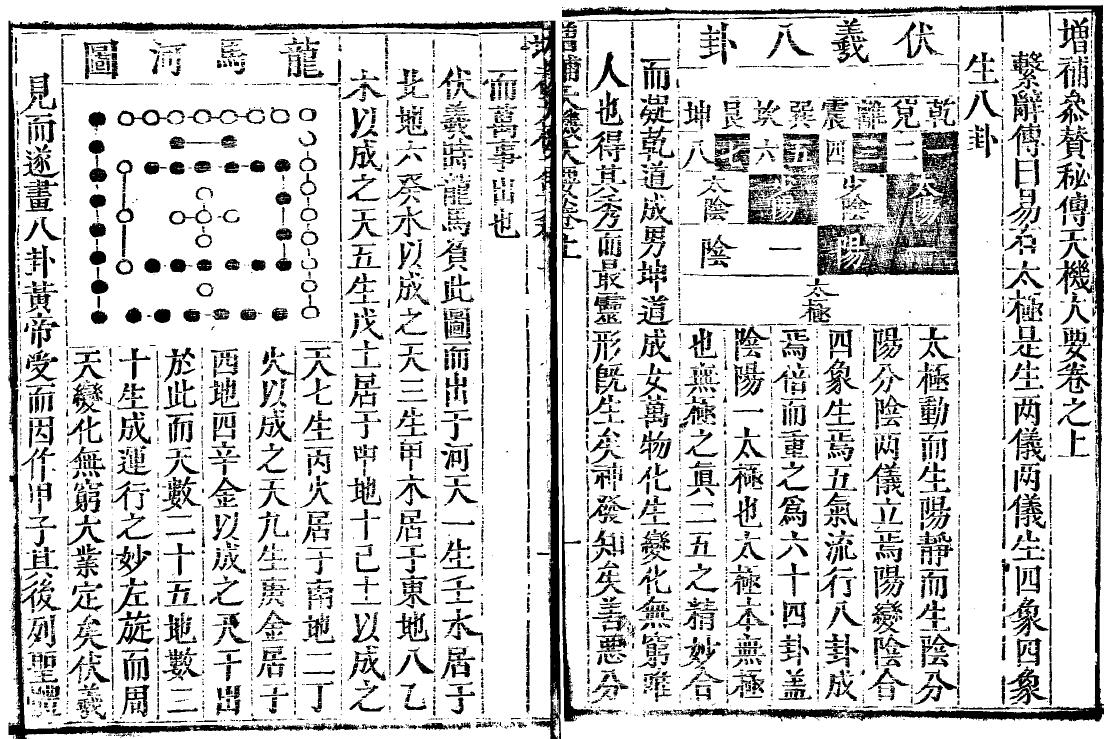 增補叅贊秘傳天機大要卷之上
繫辭傳曰易有太極是生两儀两儀生四象四象
生八卦
伏羲八卦
乾兌離震巽坎艮坤
一二三四五六七八
太陽少陰少陽太陰
陽一陰
太極
太極動而生陽靜而生陰分
陽分陰两儀立焉陽變陰合
四象生焉五氣流行八卦成
焉倍而重之爲六十四卦盖
陰陽一太極也太極本無極
也無極之真二五之精妙合
而凝乾道成男坤道成女萬物化生變化無窮唯
人也得其秀而最靈形旣生矣神發知矣善惡分
而萬事出也
龍馬河圖
伏羲時龍馬負此圖而出于河天一生壬水居于
北地六癸水以成之天三生甲木居于東地八乙
木以成之天五生戊土居于中地十己土以成之
天七生丙火居于南地二丁
火以成之天九生庚金居于
西地四辛金以成之天干出
於此而天數二十五地數三
十生成運行之妙左旋而周
天變化無窮大業定矣伏羲
見而遂畫八卦黃帝受而因作甲子其後列聖體